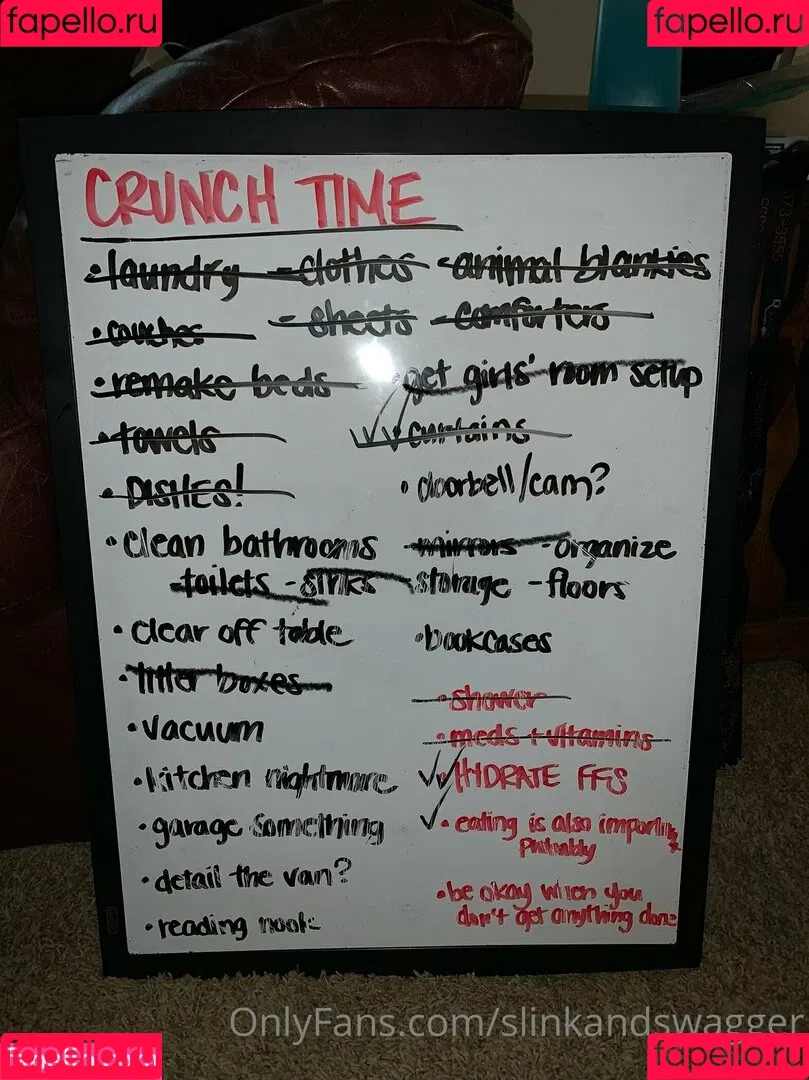 fapello.ru fapello.ru
CRUNCH TIME
• laundry - clothes - animal blankies
- sheets - comforters
• couches
• remake beds
• get girls' room setup
• towels
• curtains
• DISHES!
• doorbell/cam?
• clean bathrooms - mirrors - organize
- toilets - sinks storage - floors
• clear off table
• bookcases
• litter boxes
• shower
• vacuum
• meds + vitamins
• kitchen nightmare
• HYDRATE FFS
• garage something
• eating is also important
Probably
• detail the van?
• be okay when you
don't get anything done
• reading nook
OnlyFans.com/slinkandswagger
fapello.ru fapello.ru